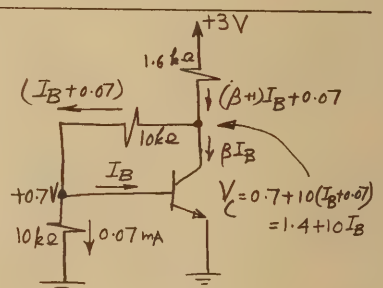 +3V
1.6kΩ
(I_B+0.07)
(β+1)I_B+0.07
10kΩ
I_B
βI_B
+0.7V
V_C=0.7+10(I_B+0.07)
=1.4+10I_B
10kΩ
0.07mA